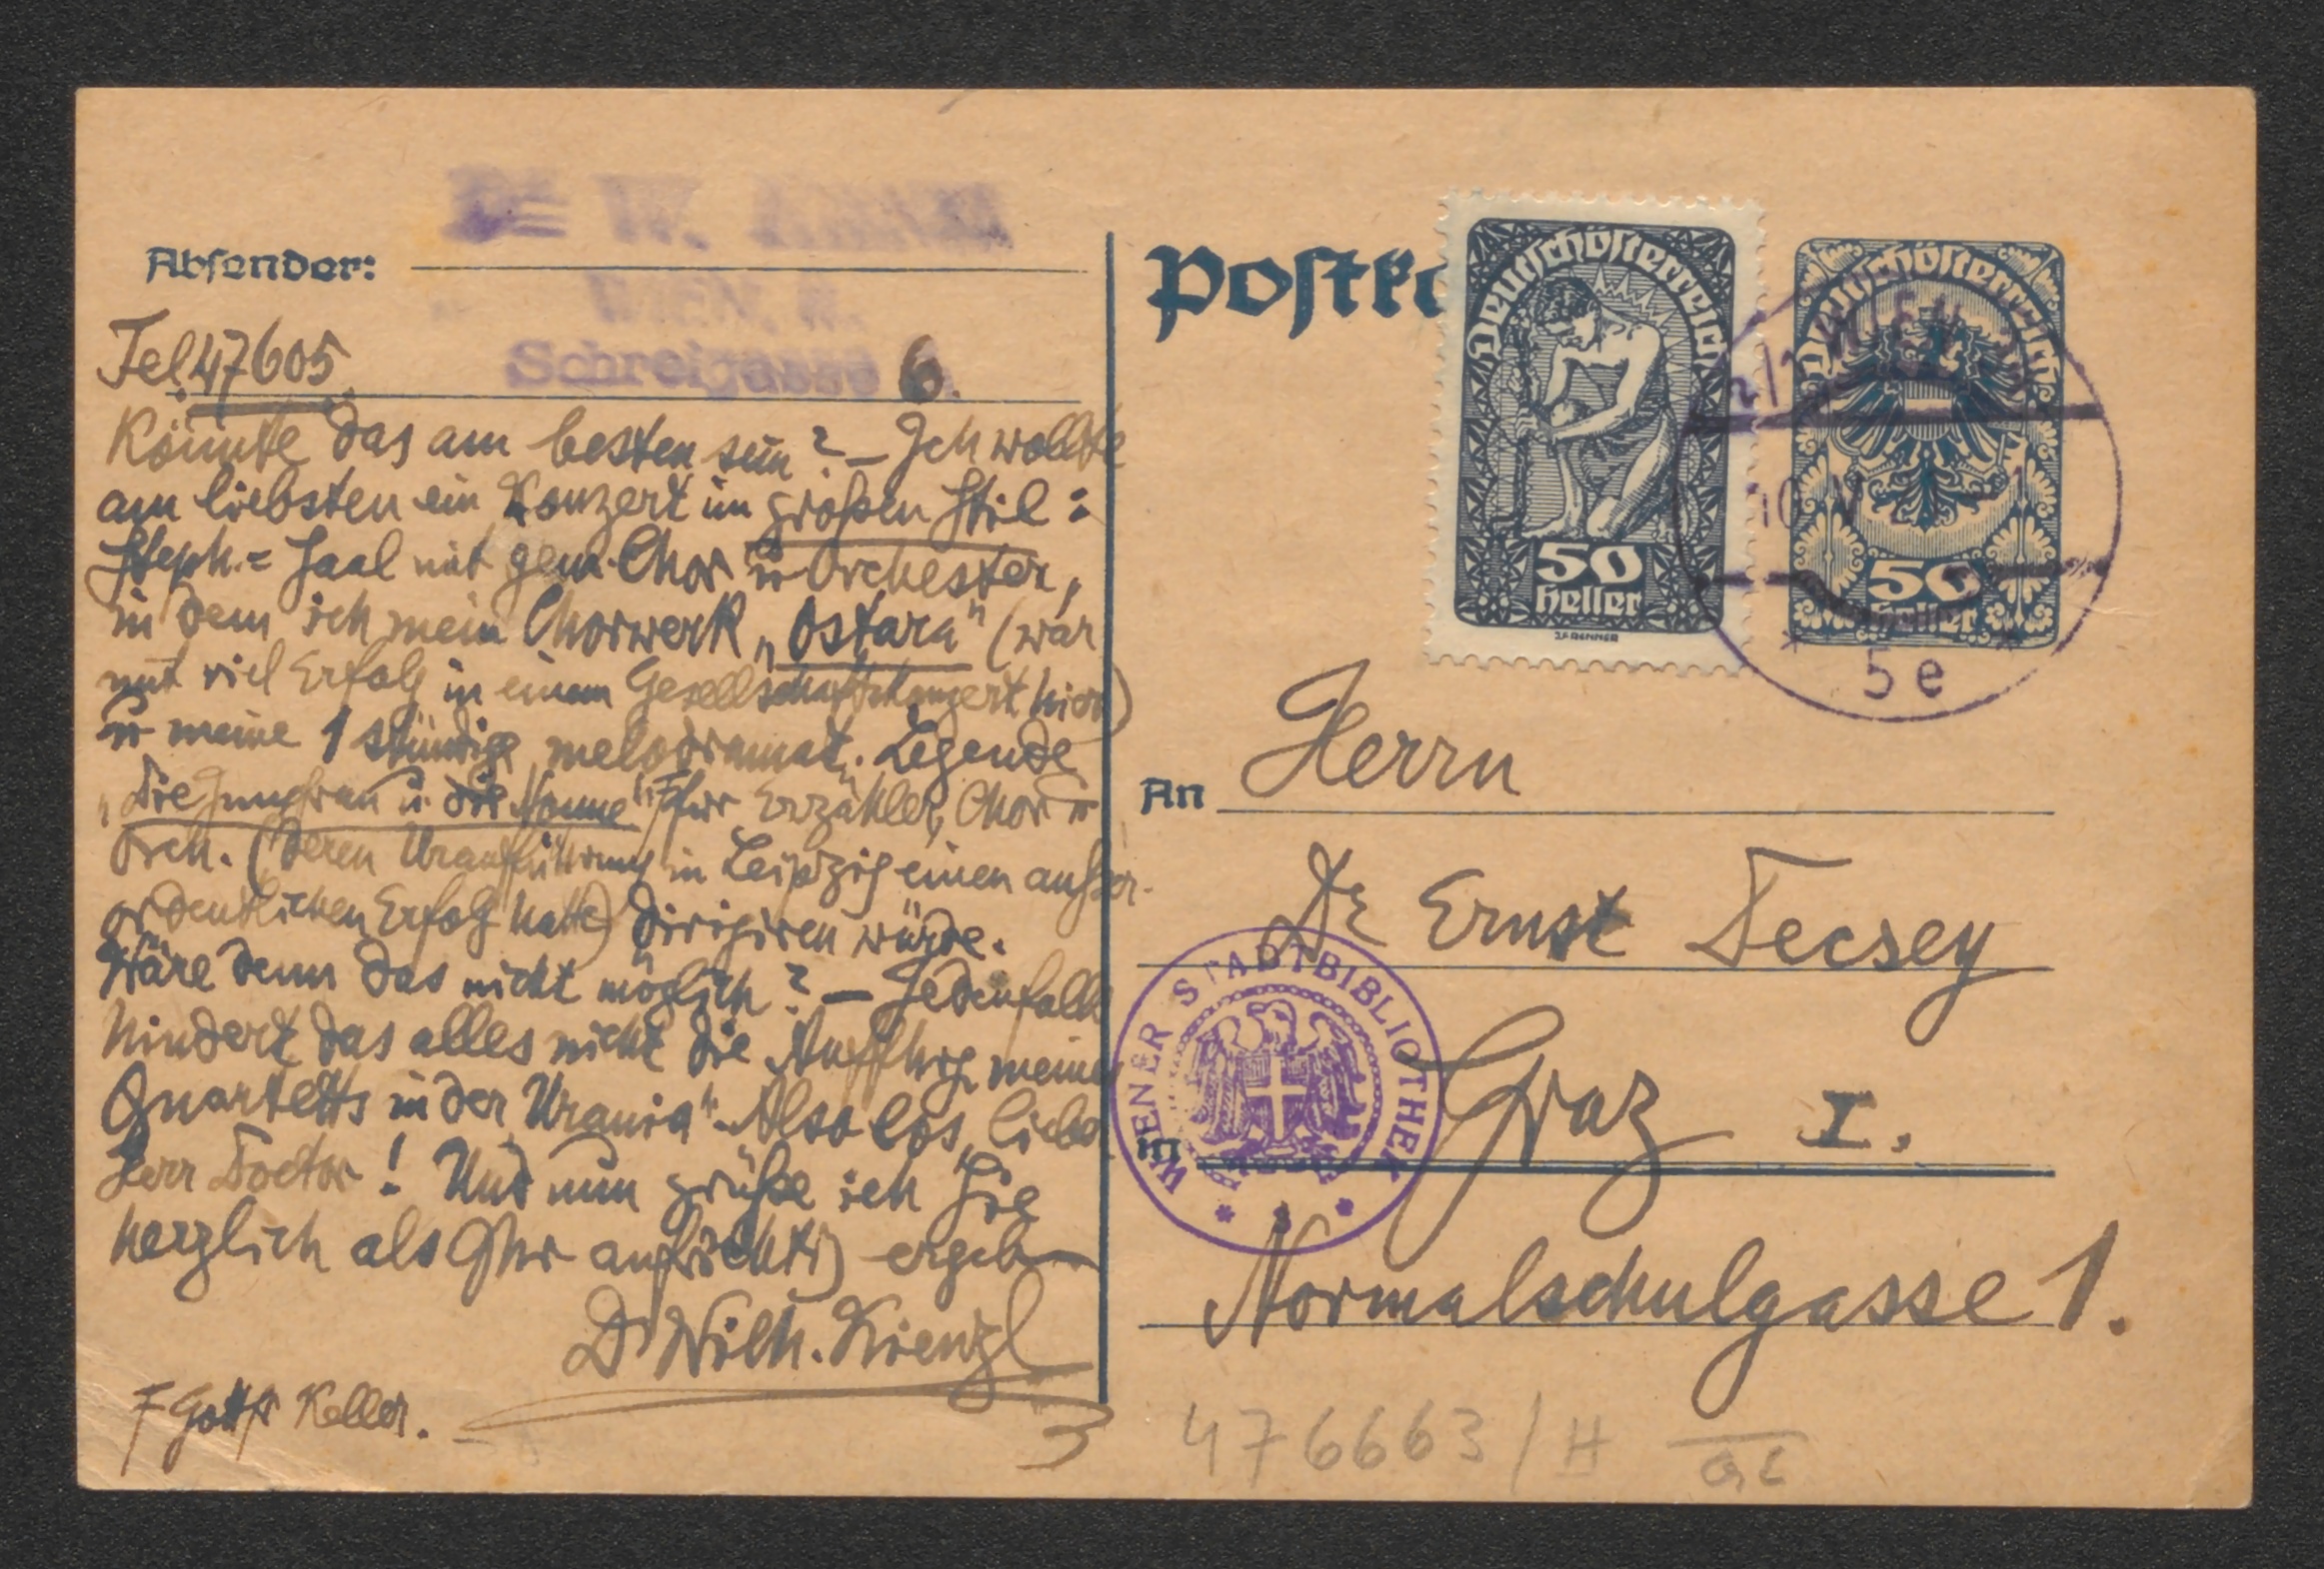 Dr W. Kienzl
WIEN, II.
Schreigasse 6.
Absender:
Tel. 47605.
könnte das am besten sein? – Ich wollte
am liebsten ein Konzert im großen Stil:
Steph.=Saal mit gem. Chor u Orchester,
in dem ich mein Chorwerk „Ostara" (war
mit viel Erfolg in einem Gesellschaftskonzert hier)
u meine 1 stündige melodramat. Legende
„Die Jungfrau u. die Nonne" F für Erzähler, Chor u
Orch. (deren Uraufführung in Leipzig einen außer-
ordentlichen Erfolg hatte) dirigiren würde.
Wäre denn das nicht möglich? – Jedenfalls
hindert das alles nicht die Auffhrg. meines
Quartetts in der Urania". Also los, lieber
Herr Doctor! Und nun grüße ich Sie
herzlich als Ihr aufrichtig ergeb
Dr Wilh. Kienzl
F Gottfr Keller.
Postka
Deutschösterreich
50
Heller
J.F. RENNER
Deutschösterreich
50
Heller
WIEN
10 V
* 5e *
An Herrn
Dr Ernst Decsey
in Graz I.
Normalschulgasse 1.
WIENER STADTBIBLIOTHEK
3
476663/H